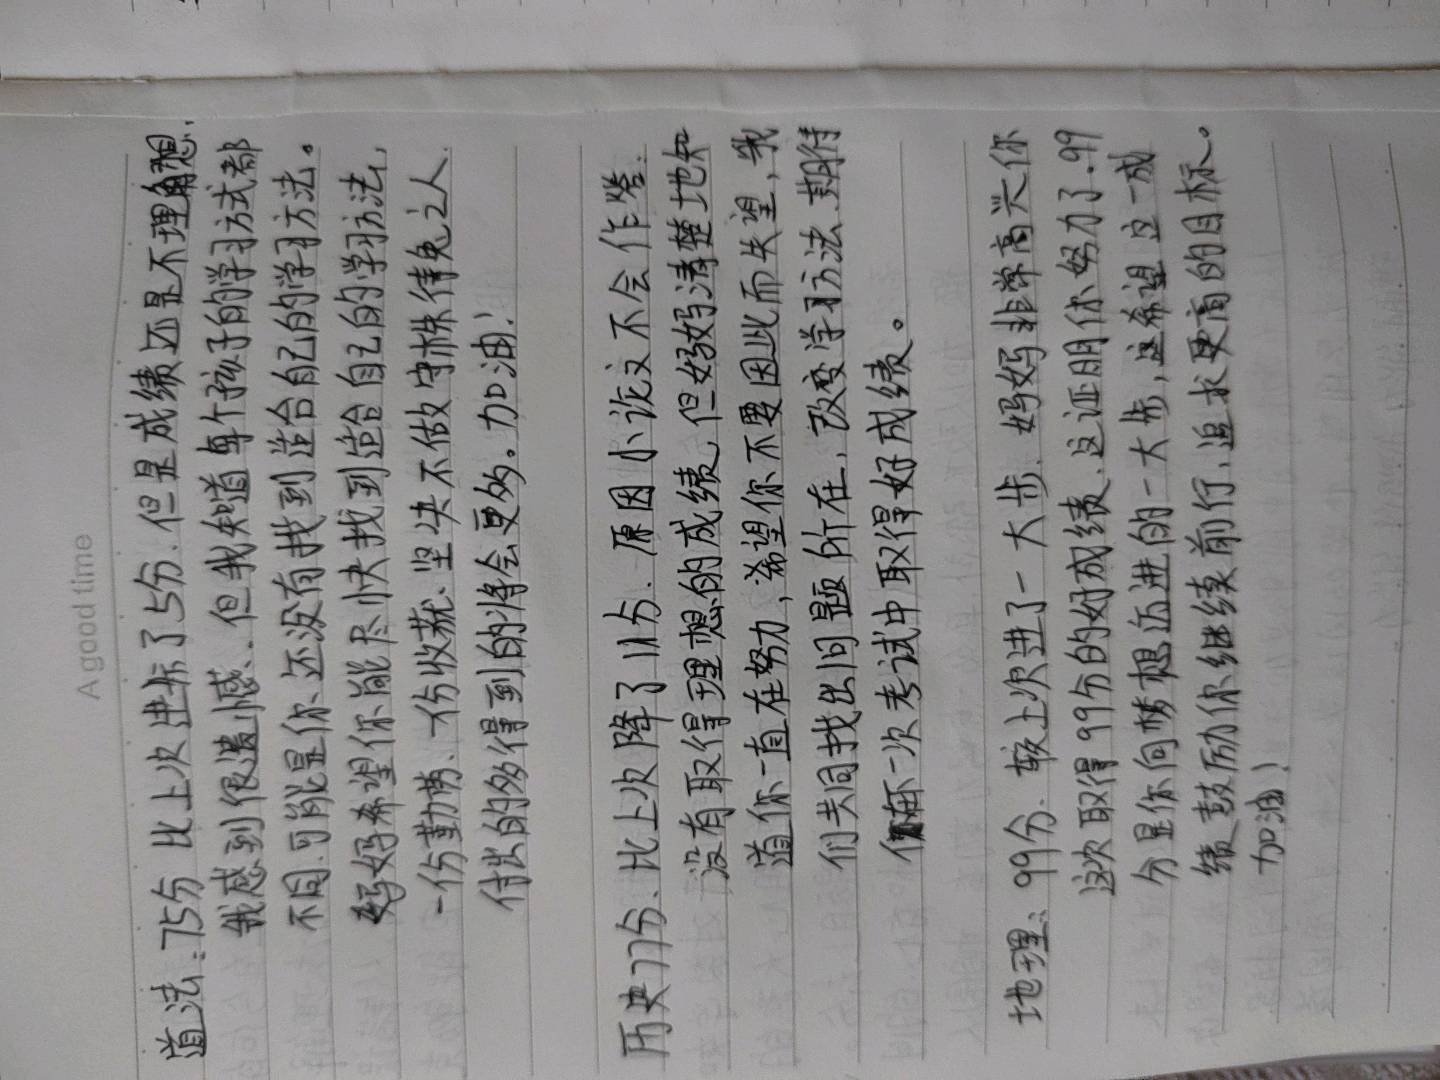 A good time
道法:75分 比上次进步了5分.但是成绩还是不理想.
我感到很遗憾、.但我知道每个孩子的学习方式都
不同.可能是你还没有找到适合自己的学习方法。
妈妈希望你能尽快找到适合自己的学习方法,
一份勤劳、一份收获、坚决不做守株待兔之人.
付出的多得到的将会更多。加油!
历史77分、比上次降了11分、原因小论文不会作答.
没有取得理想的成绩,但妈妈清楚地知
道你一直在努力,希望你不要因此而失望,我
们共同找出问题所在,改变学习方法.期待
你在下一次考试中取得好成绩。
地理:99分.较上次进了一大步.妈妈非常高兴你
这次取得99分的好成绩、这证明你努力了.99
分是你向梦想迈进的一大步,这希望这一成
绩鼓励你继续前行,追求更高的目标。
加油!